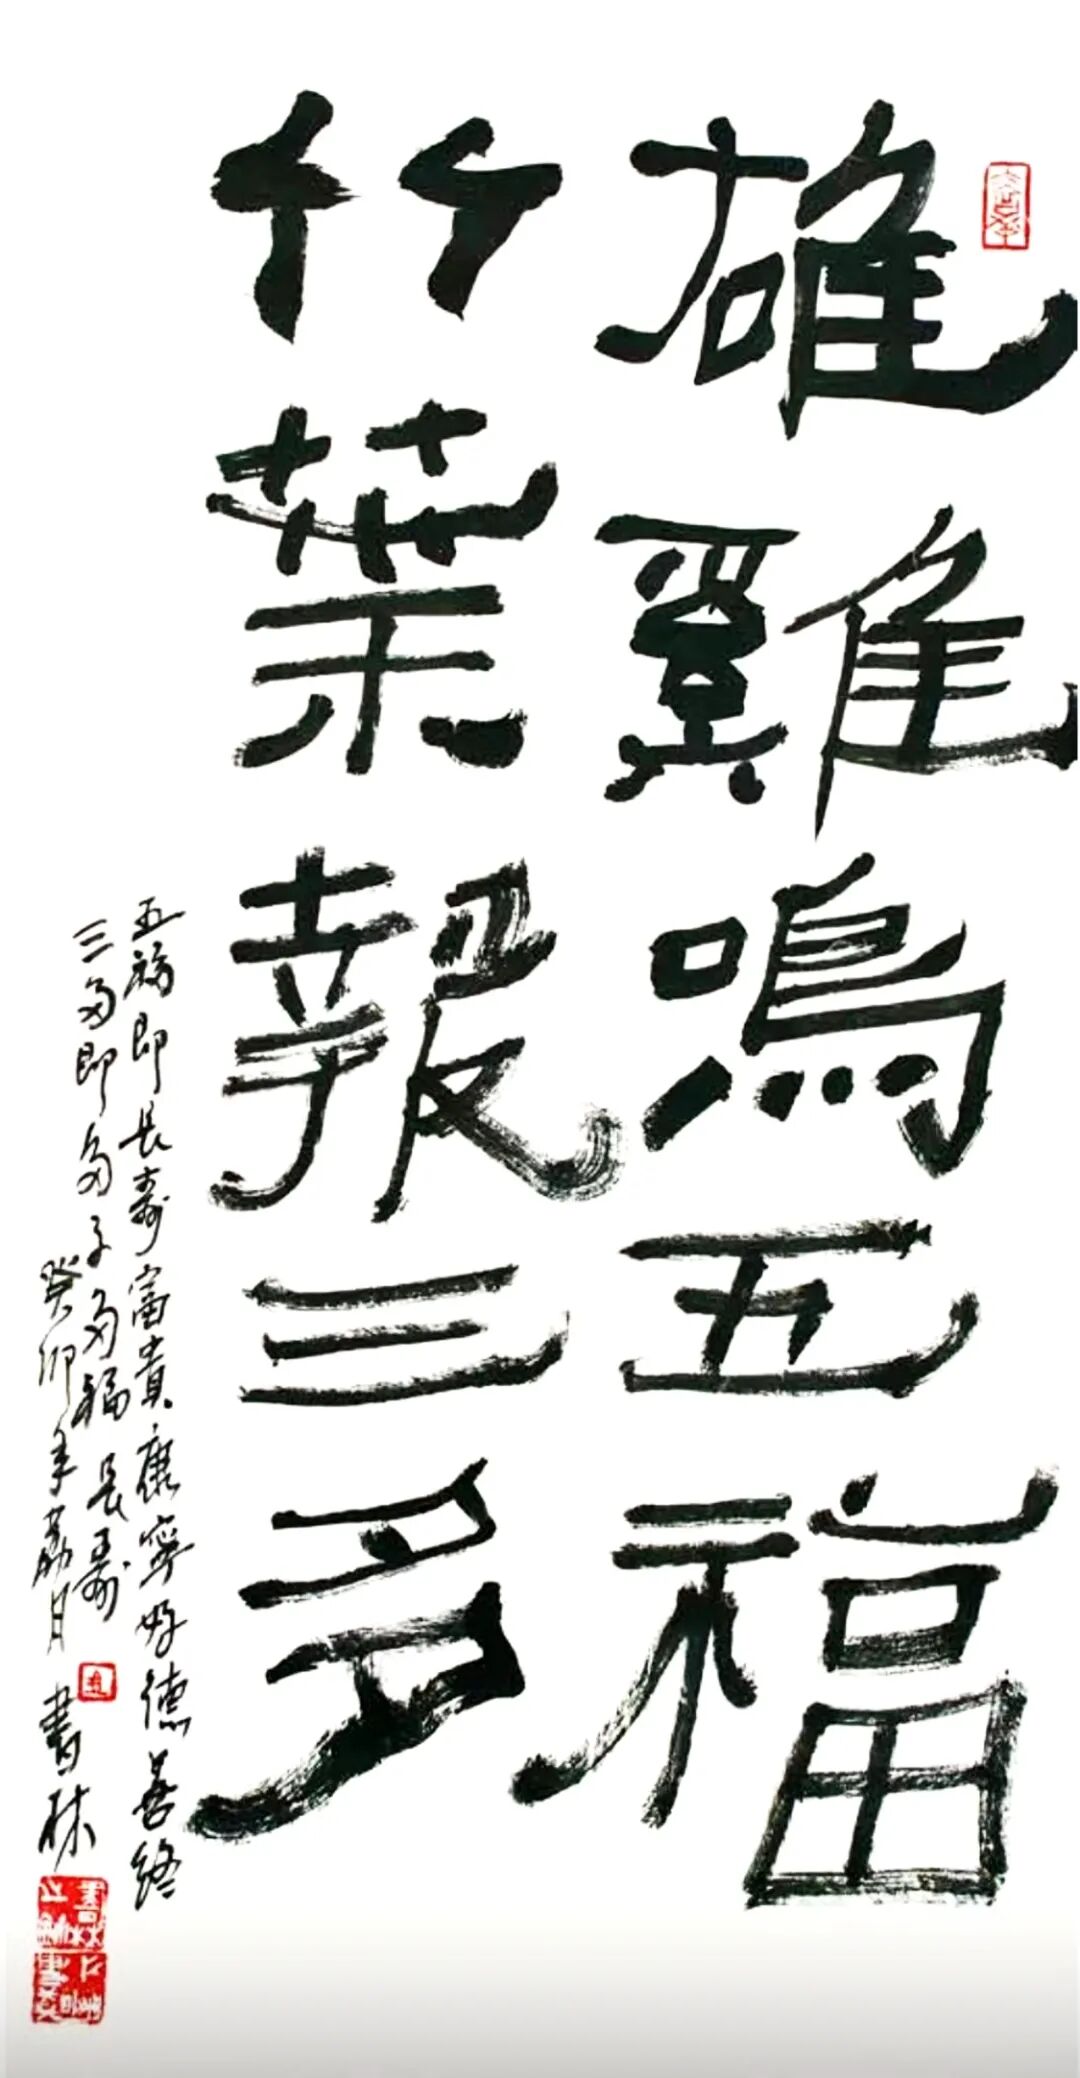 雄雞鳴五福
竹葉報三多
五福即長壽富貴康寧好德善终
三多即多子多福長壽
癸卯年荔月
書林